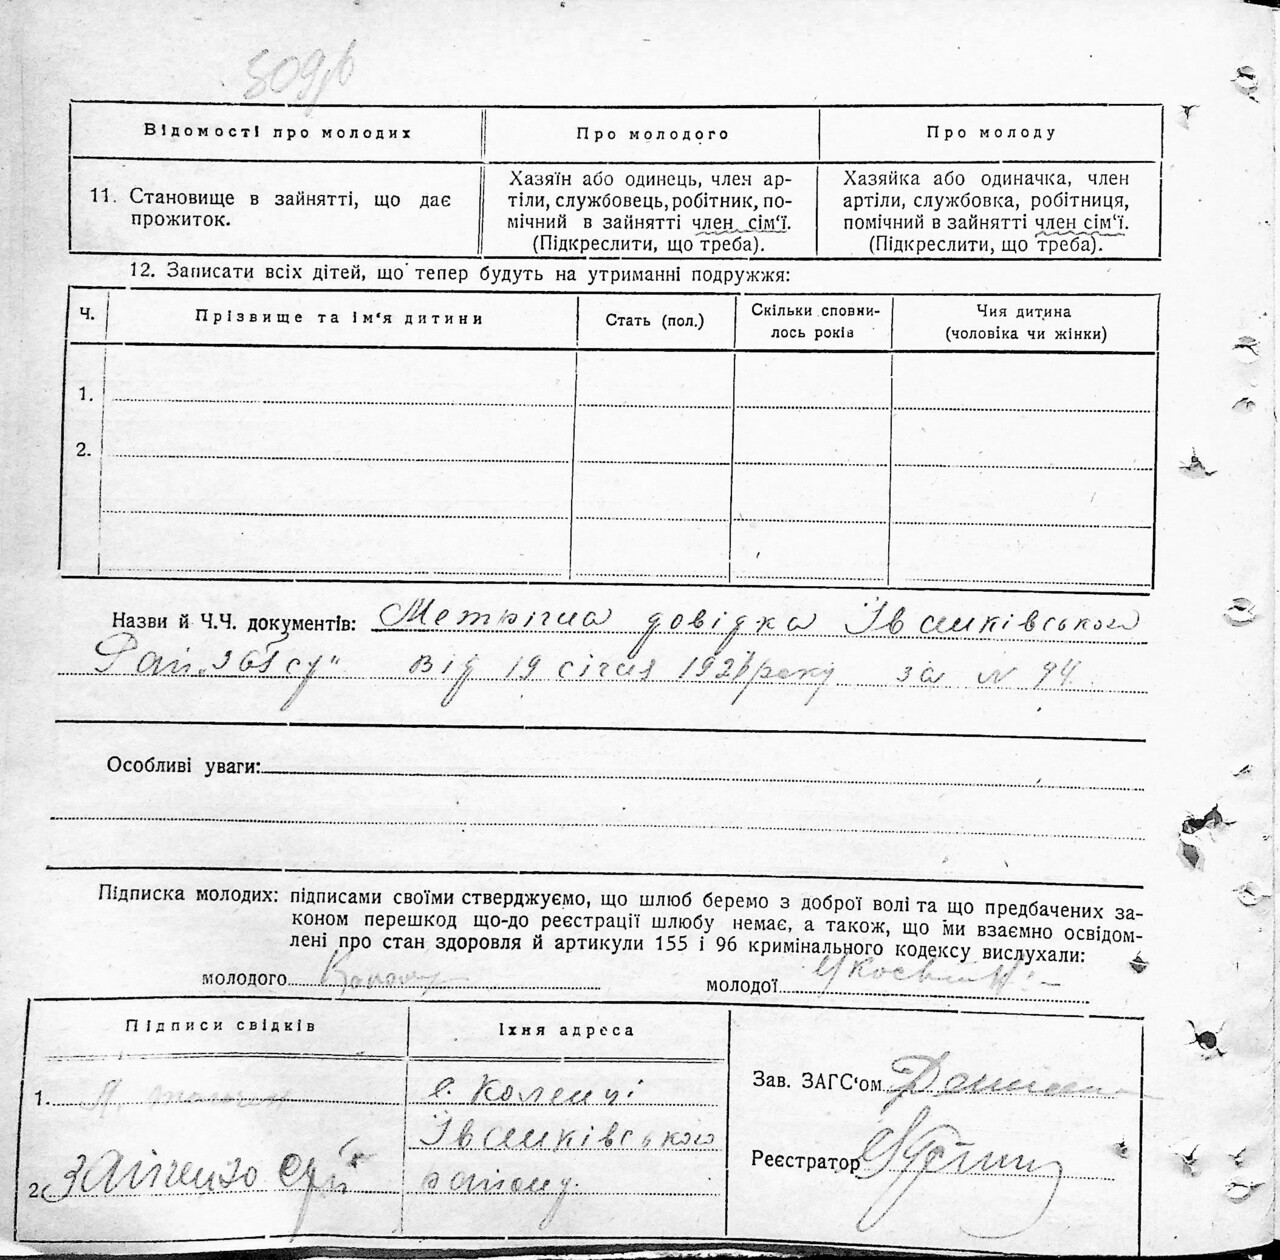 Відомості про молодих
Про молодого
Про молоду
11. Становище в зайнятті, що дає
прожиток.
Хазяїн або одинець, член ар-
тіли, службовець, робітник, по-
мічний в зайнятті член сім‘ї.
(Підкреслити, що треба).
Хазяйка або одиначка, член
артіли, службовка, робітниця,
помічний в зайнятті член сім‘ї.
(Підкреслити, що треба).
12. Записати всіх дітей, що тепер будуть на утриманні подружжя:
Ч.
Прізвище та ім‘я дитини
Стать (пол.)
Скільки сповни-
лось років
Чия дитина
(чоловіка чи жінки)
1.
2.
Назви й Ч.Ч. документів: Метрична довідка Іванківського
від 19 січня року за N 94
Особливі уваги:
Підписка молодих: підписами своїми стверджуємо, що шлюб беремо з доброї волі та що предбачених за-
коном перешкод що-до реєстрації шлюбу немає, а також, що ми взаємно освідом-
лені про стан здоровля й артикули 155 і 96 кримінального кодексу вислухали:
молодого
молодої
Підписи свідків
Їхня адреса
1.
с. Коленці
Іванківського
2.
району.
Зав. ЗАГС‘ом
Реєстратор